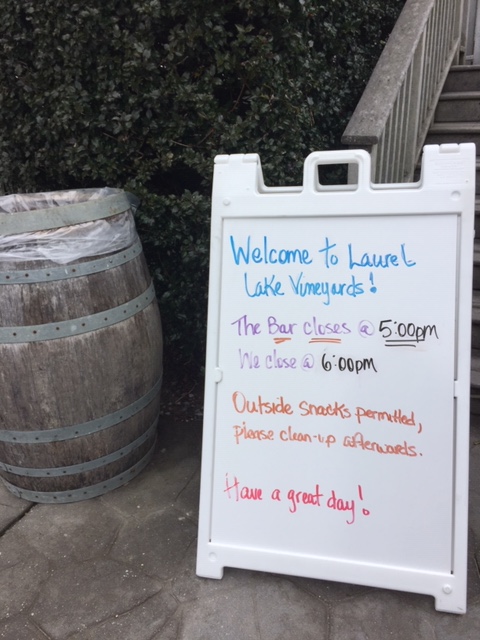 Welcome to Laurel
Lake Vineyards!
The Bar closes @ 5:00pm
We close @ 6:00pm
Outside snacks permitted,
please clean-up afterwards.
Have a great day!